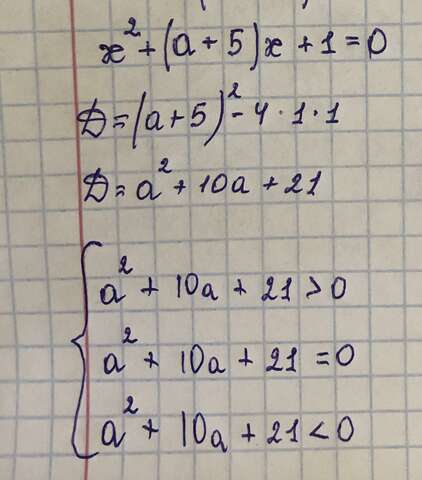 x² + (a + 5)x + 1 = 0
D = (a + 5)² - 4 · 1 · 1
D = a² + 10a + 21
a² + 10a + 21 > 0
a² + 10a + 21 = 0
a² + 10a + 21 < 0